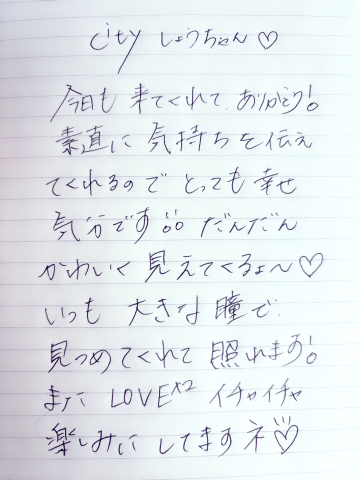 city しょうちゃん♡
今日も 来てくれて ありがとう!
素直に 気持ちを伝え
てくれるので とっても 幸せ
気分です!! だんだん
かわいく 見えてくるよ〜♡
いつも 大きな 瞳で
見つめてくれて 照れます!
また LOVE×2 イチャイチャ
楽しみに してますネ♡